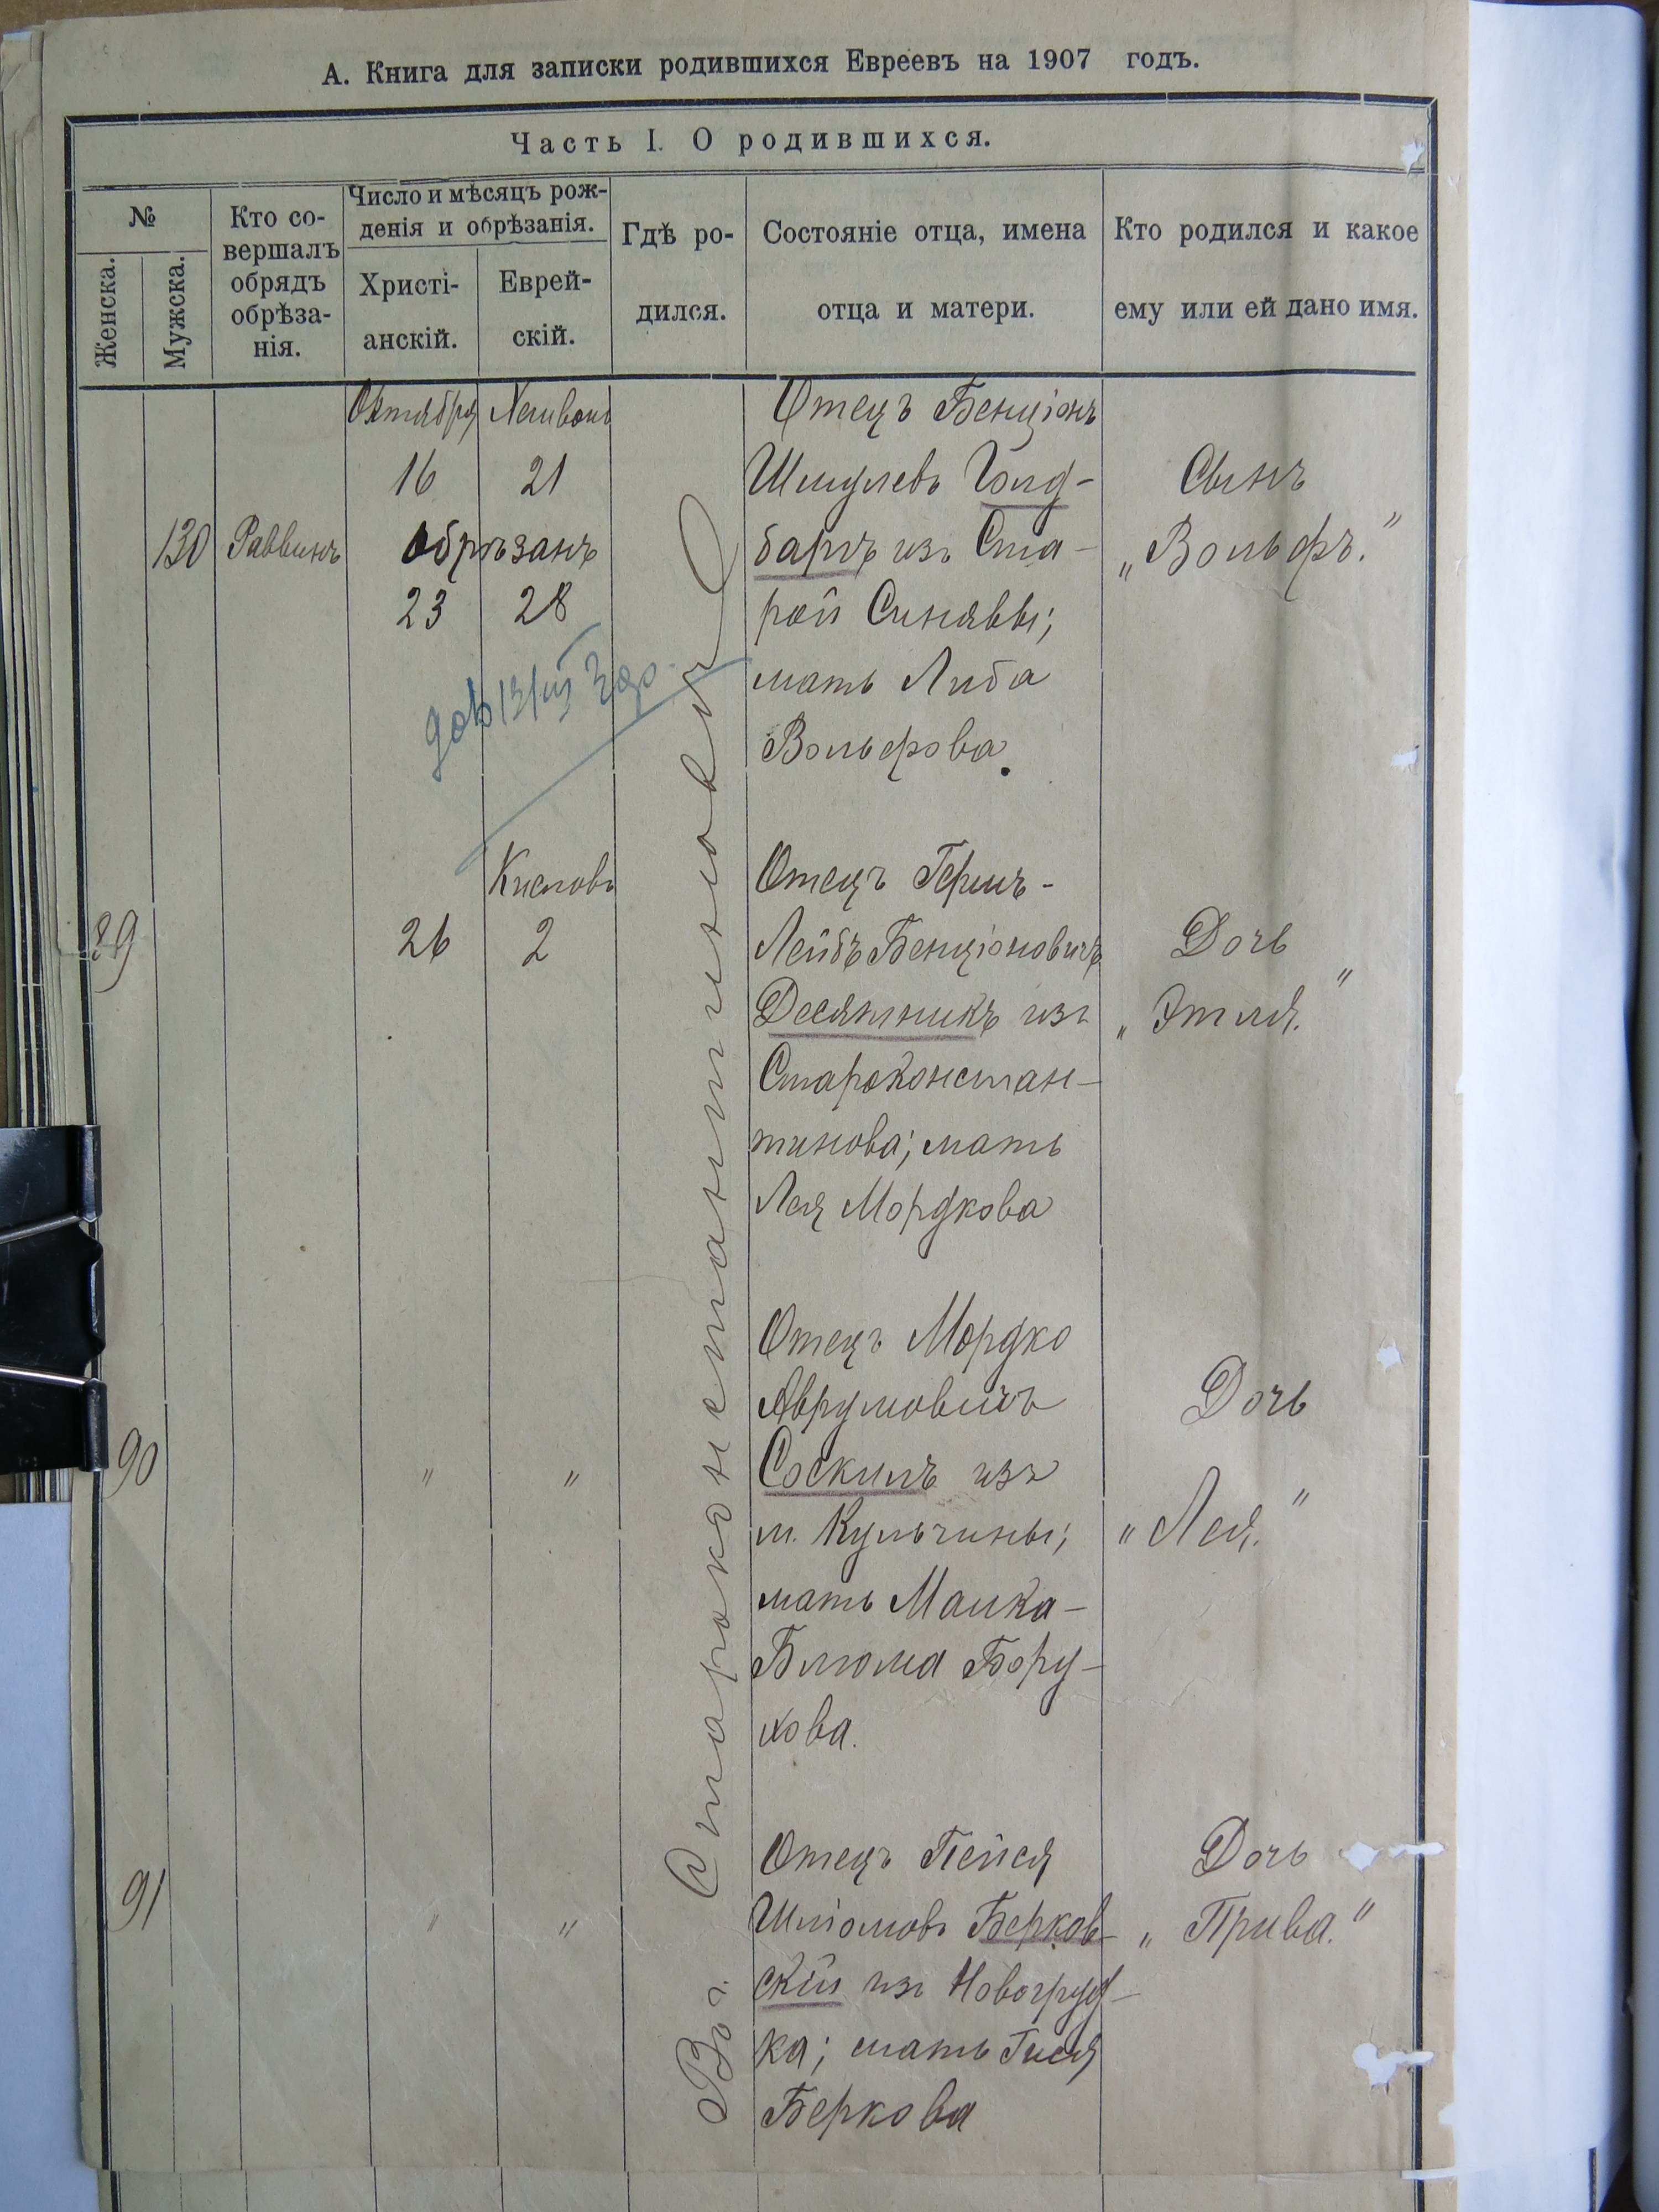 А. Книга для записки родившихся Евреевъ на 1907 годъ.
Часть I. О родившихся.
№
Женска.
Мужска.
Кто со-
вершалъ
обрядъ
обрѣза-
нія.
Число и мѣсяцъ рож-
денія и обрѣзанія.
Христі-
анскій.
Еврей-
скій.
Гдѣ ро-
дился.
Состояніе отца, имена
отца и матери.
Кто родился и какое
ему или ей дано имя.
Въ г. Староконстантиновѣ
Октября Хешвонъ
16 21
130 Раввинъ обрѣзанъ
23 28
Отецъ Бенціонъ
Шмулевъ Голд-
барть изъ Ста-
рой Синявы;
мать Либа
Вольфова.
Сынъ
„Вольфъ."
Кислевъ
89 26 2
Отецъ Герш-
Лейбъ Бенціоновичъ
Десятникъ изъ
Староконстан-
тинова; мать
Лея Мордкова
Дочь
„Этля."
90 " "
Отецъ Мордко
Аврумовичъ
Соскилъ изъ
м. Кульчины;
мать Малка-
Блюма Бору-
хова.
Дочь
„Лея."
91 " "
Отецъ Пейся
Шліомовъ Берков-
скій изъ Новогруд-
ка; мать Гися
Беркова
Дочь
„Прива."